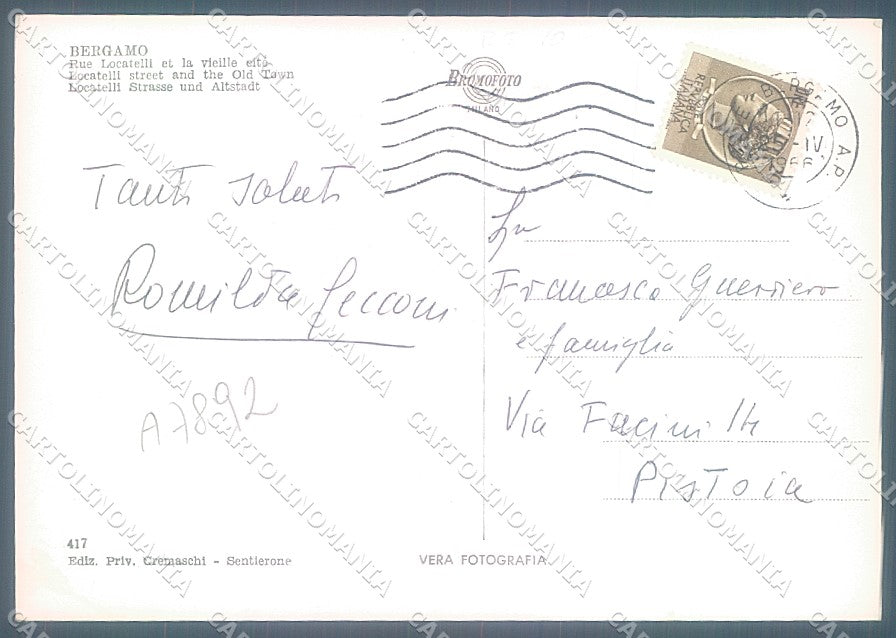 BERGAMO
Rue Locatelli et la vieille cité
Locatelli street and the Old Town
Locatelli Strasse und Altstadt
BROMOFOTO
MILANO
BERGAMO A.P.
-IV
1966
REPUBBLICA ITALIANA
Tanti saluti
Romilda Cecconi
Francesco Guerriero
e famiglia
Via Facini
Pistoia
A7892
417
Ediz. Priv. Cremaschi - Sentierone
VERA FOTOGRAFIA
CARTOLINOMANIA